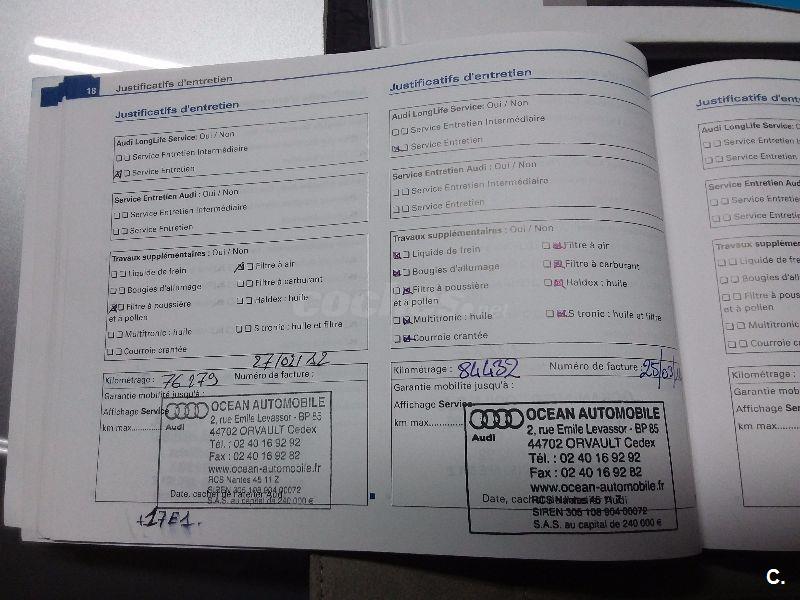 18
Justificatifs d'entretien
Justificatifs d'entretien
Audi LongLife Service: Oui / Non
Service Entretien Intermédiaire
Service Entretien
Service Entretien Audi : Oui / Non
Service Entretien Intermédiaire
Service Entretien
Travaux supplémentaires : Oui / Non
Liquide de frein
Filtre à air
Bougies d'allumage
Filtre à carburant
Filtre à poussière
et à pollen
Haldex : huile
Multitronic : huile
S tronic : huile et filtre
Courroie crantée
27/02/12
Kilométrage : 76279
Numéro de facture :
Garantie mobilité jusqu'à :
Affichage Service
km max
Audi
OCEAN AUTOMOBILE
2, rue Emile Levassor - BP 85
44702 ORVAULT Cedex
Tél. : 02 40 16 92 92
Fax : 02 40 16 92 82
www.ocean-automobile.fr
RCS Nantes 45 11 Z
SIREN 305 108 904 00072
Date, cachet de l'atelier Audi
S.A.S. au capital de 240 000 €
Justificatifs d'entretien
Audi LongLife Service: Oui / Non
Service Entretien Intermédiaire
Service Entretien
Service Entretien Audi : Oui / Non
Service Entretien Intermédiaire
Service Entretien
Travaux supplémentaires : Oui / Non
Liquide de frein
Filtre à air
Bougies d'allumage
Filtre à carburant
Filtre à poussière
et à pollen
Haldex : huile
Multitronic : huile
S tronic : huile et filtre
Courroie crantée
Kilométrage : 84432
Numéro de facture : 25/03/
Garantie mobilité jusqu'à :
Affichage Service
km max
Audi
OCEAN AUTOMOBILE
2, rue Emile Levassor - BP 85
44702 ORVAULT Cedex
Tél. : 02 40 16 92 92
Fax : 02 40 16 92 82
www.ocean-automobile.fr
RCS Nantes 45 11 Z
SIREN 305 108 904 00072
S.A.S. au capital de 240 000 €
Justificatifs d'entret
Audi LongLife Service:
Service Entretien
Service Entretien
Service Entretien Aud
Service Entretien
Service Entretien
Travaux supplémen
Liquide de fre
Bougies d'all
Filtre à pous
et à pollen
Multitronic
Courroie c
Kilométrage :
Garantie mob
Affichage Se
km max
C.